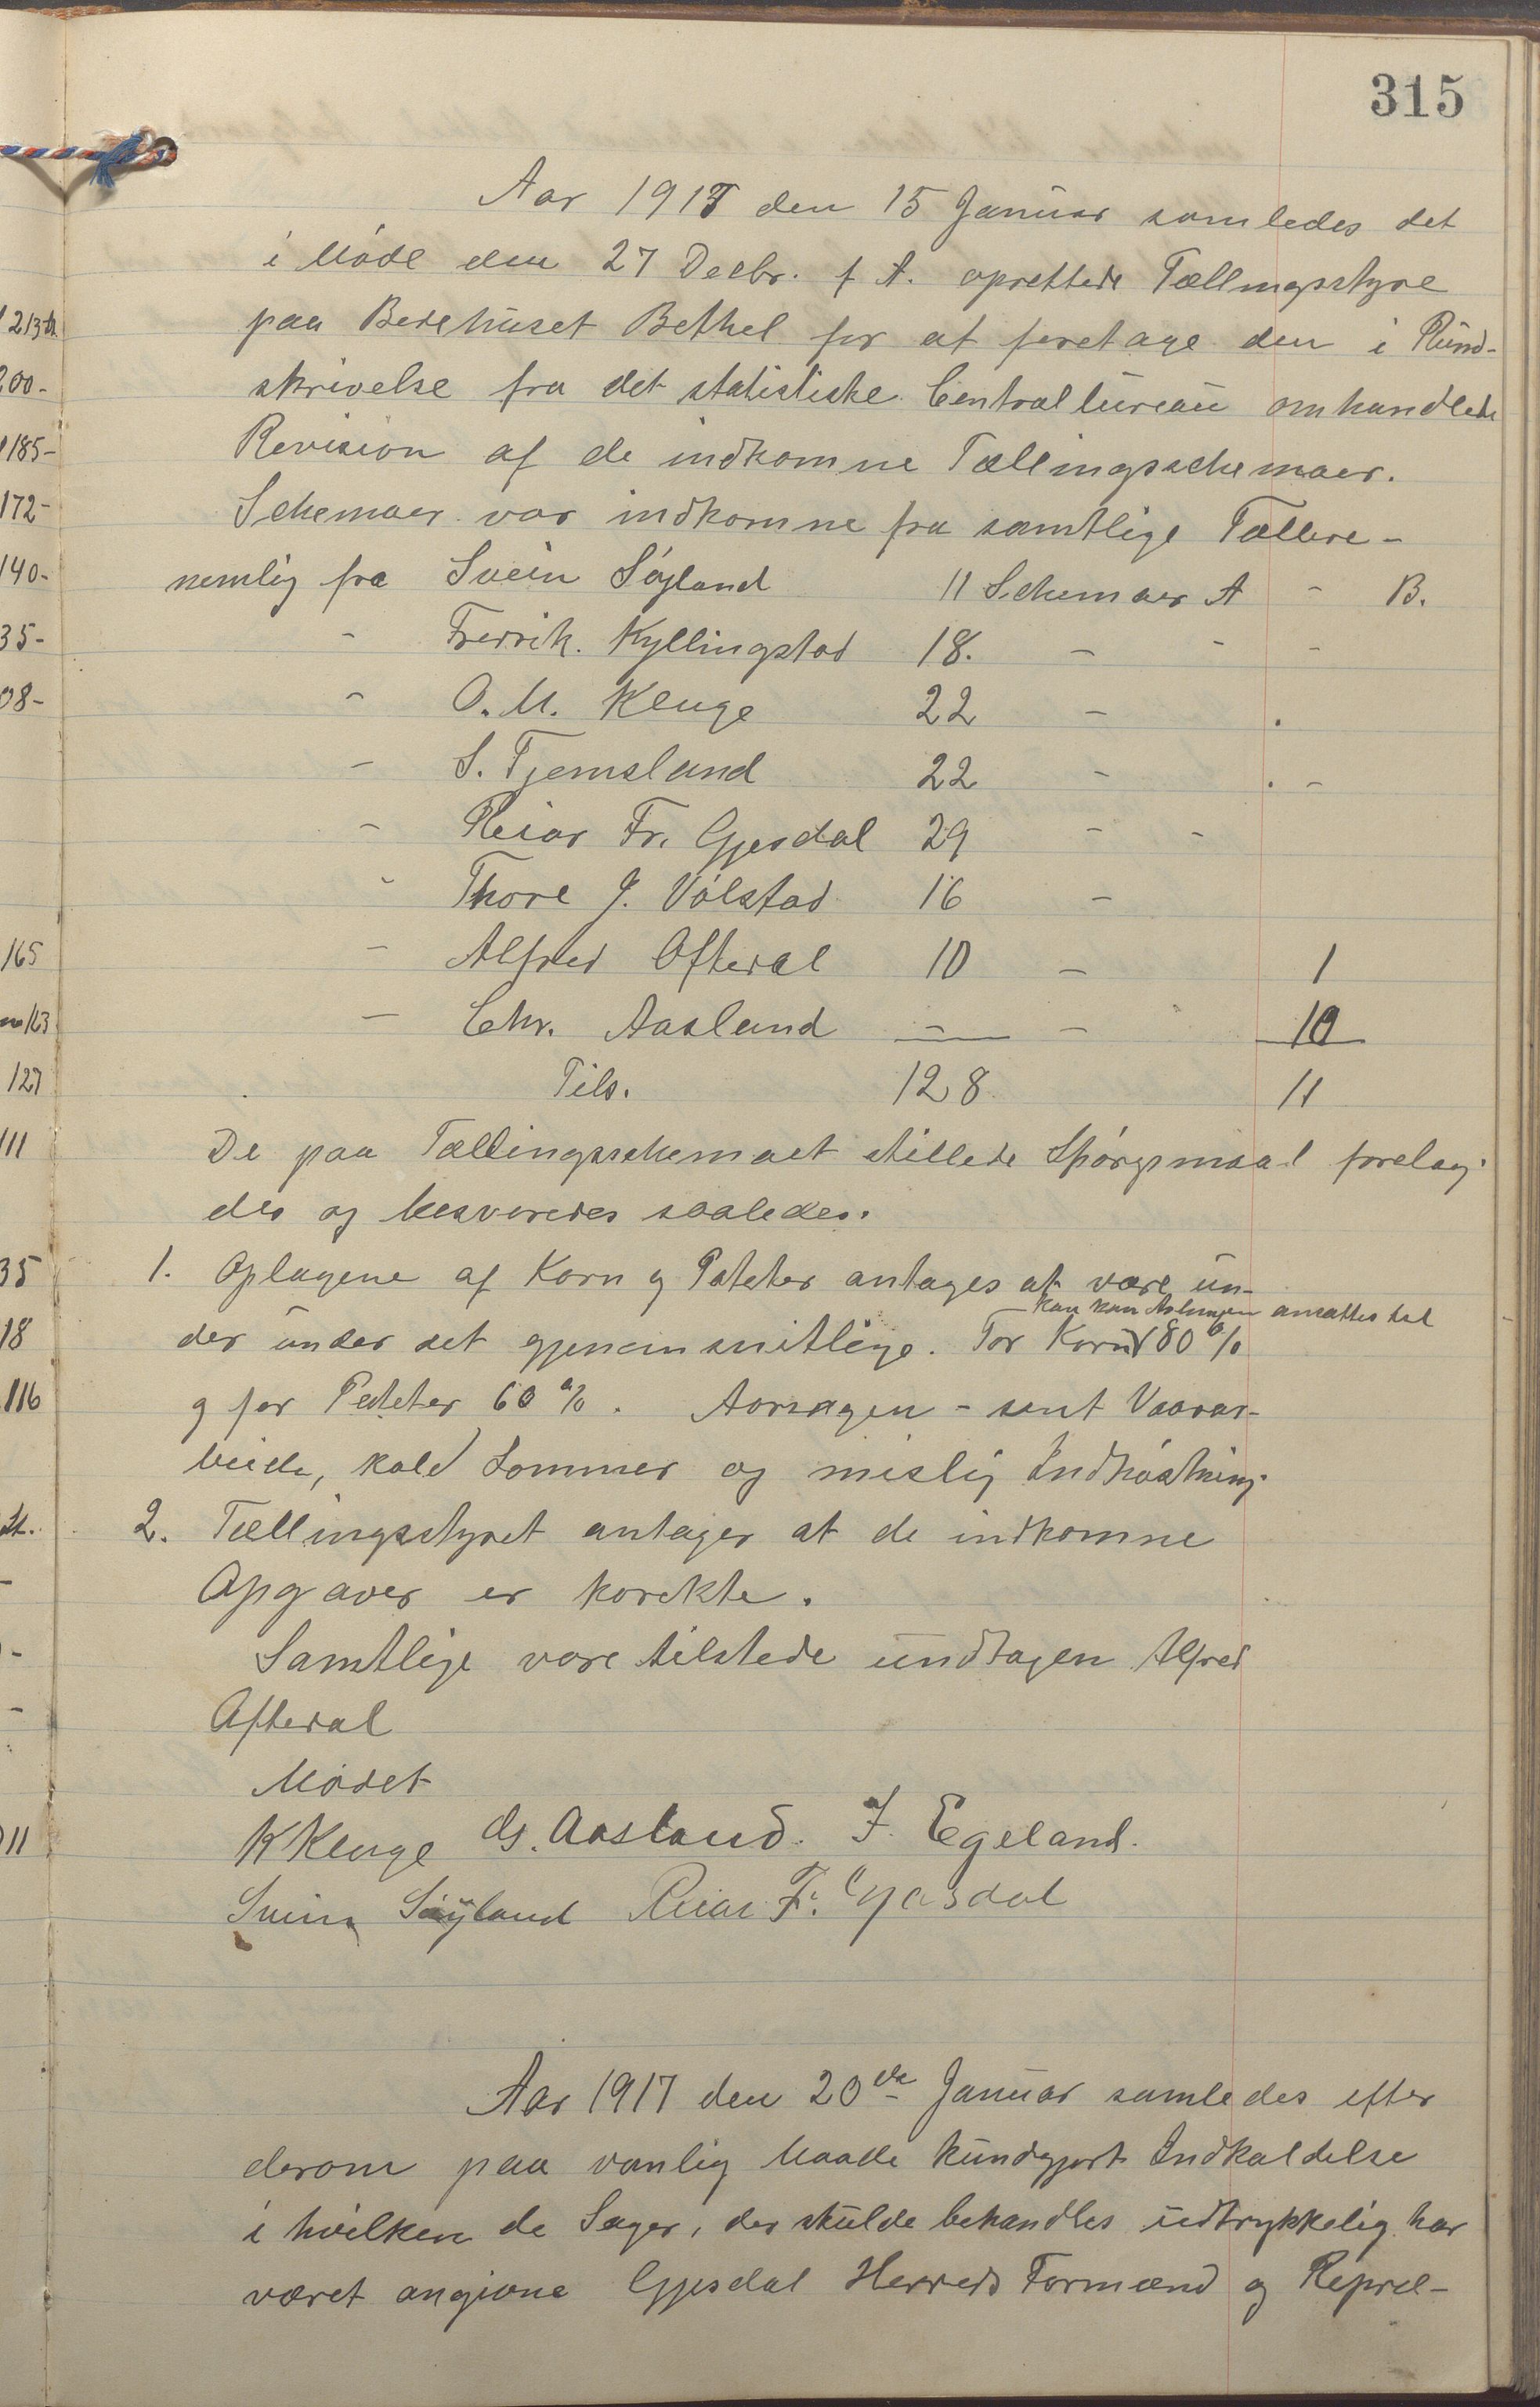 315
Aar 1917 den 15 Januar samledes det
i Møde den 27 Decbr. f A. oprettede Tællingsstyre
paa Bedehuset Bethel for at foretage den i Rund-
skrivelse fra det statistiske Centralbureau omhandlede
Revision af de indkomne Tællingsschemaer.
Schemaer var indkomne fra samtlige Tællere -
nemlig fra Svein Søyland 11 Schemaer A - B.
- Fredrik. Kyllingstad 18. - - -
- O. M. Kluge 22 - .
- S. Tjemsland 22 - . -
- Reiar Fr. Gjesdal 29 - -
- Thore J. Vølstad 16 -
- Alfred Ofteral 10 - 1
- Chr. Aasland - - 10
Tils. 128 11
De paa Tællingsschemaet stillede Spørgsmaal forelag-
des og besvaredes saaledes.
1. Oplagene af Korn og Poteter antages at være un-
der under det gjenemsnitlige. For Korn 80 %
kan kan Avlingen ansættes til
og for Poteter 60 %. Aarsagen - sent Vaarar-
beide, kold Sommer og mislig Indhøstning.
2. Tællingsstyret antager at de indkomne
Opgaver er korekte.
Samtlige vare tilstede undtagen Alfred
Ofteral
Mødet
K Kluge Aasland. J. Egeland.
Svein Søyland Reiar F. Gjesdal
Aar 1917 den 20de Januar samledes efter
derom paa vanlig Maade kundgjort Indkaldelse
i hvilken de Sager, der skulde behandles udtrykkelig har
været angivne Gjesdal Herreds Formænd og Repræ-
213
200-
185-
172-
140-
35-
08-
165
163
127
111
35
18
116
11